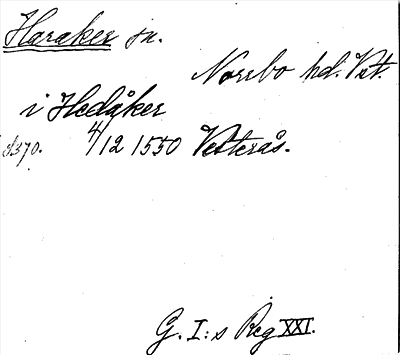 Haraker sn.
Norrbo hd. Vst.
i Hedåker
s370. 4/12 1550 Vesterås.
G. I:s Reg XXI.